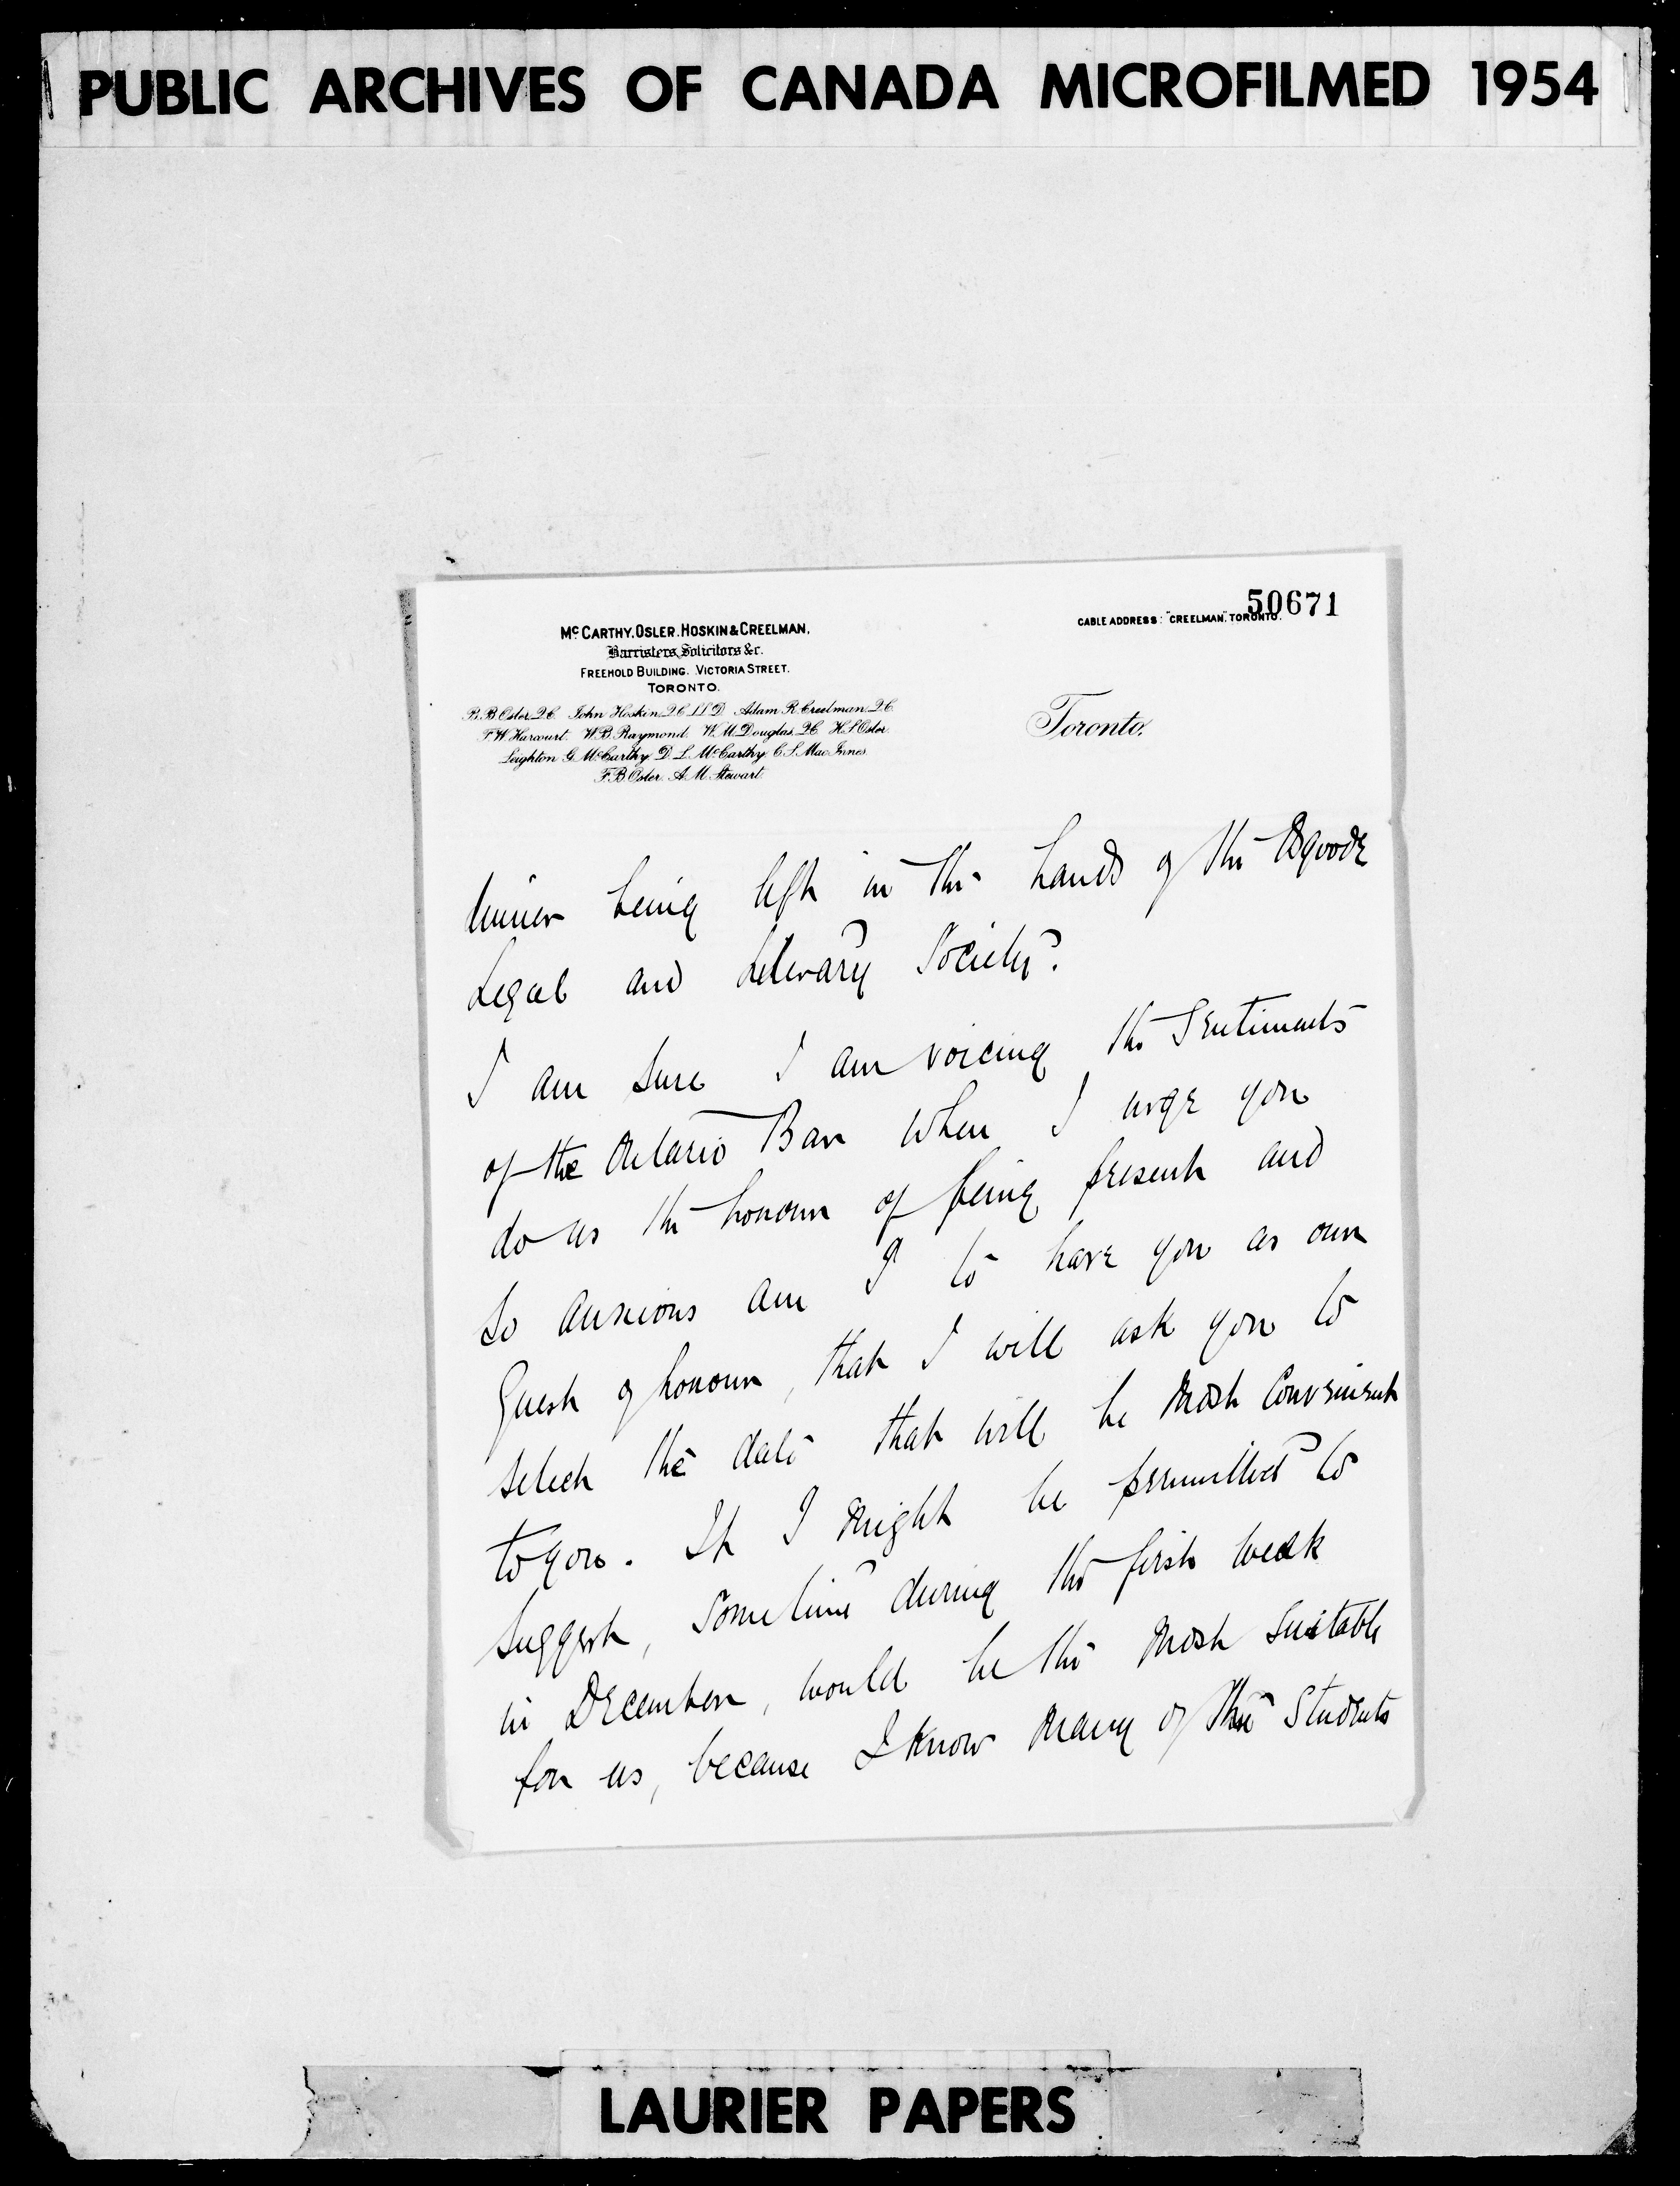 PUBLIC ARCHIVES OF CANADA MICROFILMED 1954
50671
McCARTHY, OSLER, HOSKIN & CREELMAN,
Barristers, Solicitors &c.
FREEHOLD BUILDING. VICTORIA STREET.
TORONTO.
CABLE ADDRESS: "CREELMAN," TORONTO.
B.B. Osler, Q.C. John Hoskin, Q.C. LL.D. Adam R. Creelman, Q.C.
F.W. Harcourt. W.B. Raymond. W.M. Douglas, Q.C. H.S. Osler.
Leighton G. McCarthy. D.L. McCarthy. C.S. MacInnes.
F.B. Osler. A.M. Stewart.
Toronto,
dinner being left in the hands of the Osgoode
Legal and Literary Society.
I am sure I am voicing the Sentiments
of the Ontario Bar when I urge you
do us the honour of being present and
so anxious am I to have you as our
Guest of honour, that I will ask you to
select the date that will be most Convenient
to you. If I might be permitted to
suggest, sometime during the first week
in December, would be the most suitable
for us, because I know many of the Students
LAURIER PAPERS